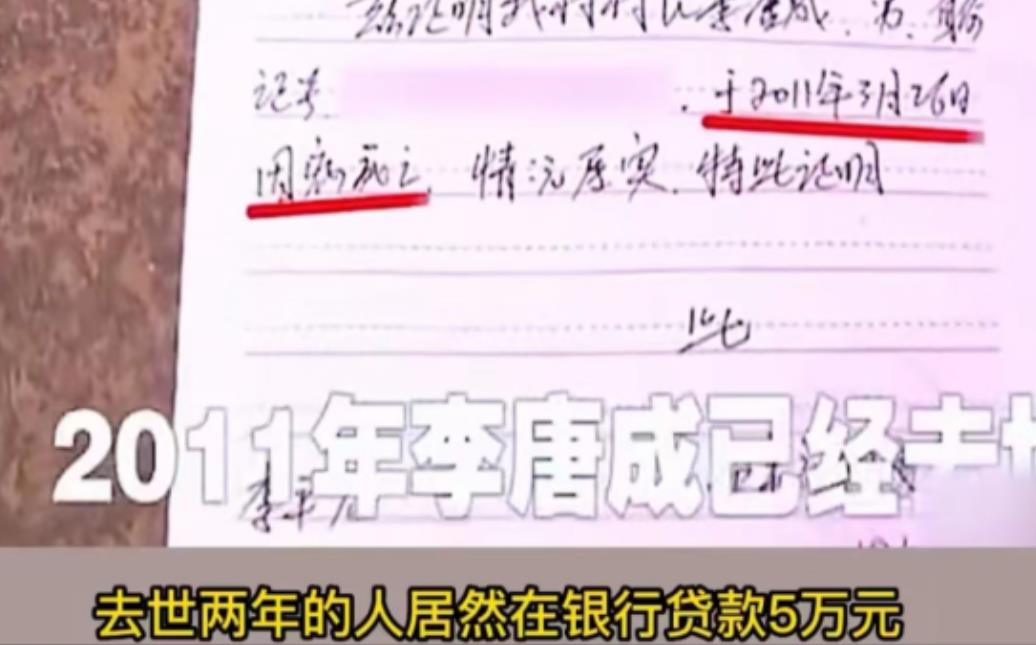 兹证明我村村民李唐成.为.身份
证号
.于2011年3月26日
因病死亡.情况属实.特此证明
此
2011年李唐成已经去世
去世两年的人居然在银行贷款5万元